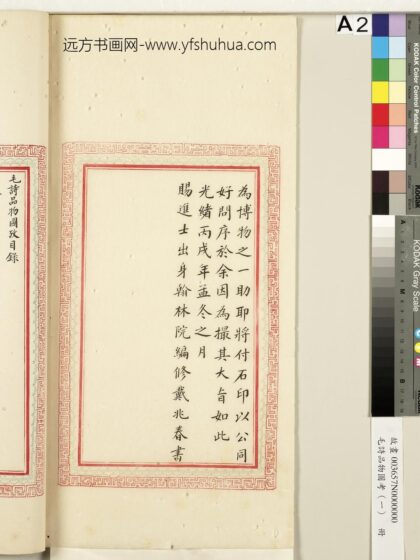 远方书画网-www.yfshuhua.com
A2
KODAK Color Control Patches
KODAK Gray Scale
為博物之一助耶將付石印以公同
好問序於余因為撮其大旨如此
光緒丙戌年孟冬之月
賜進士出身翰林院編修戴兆春書
毛詩品物圖攷目錄
故畫003657N0000000
毛詩品物圖考（一） 冊